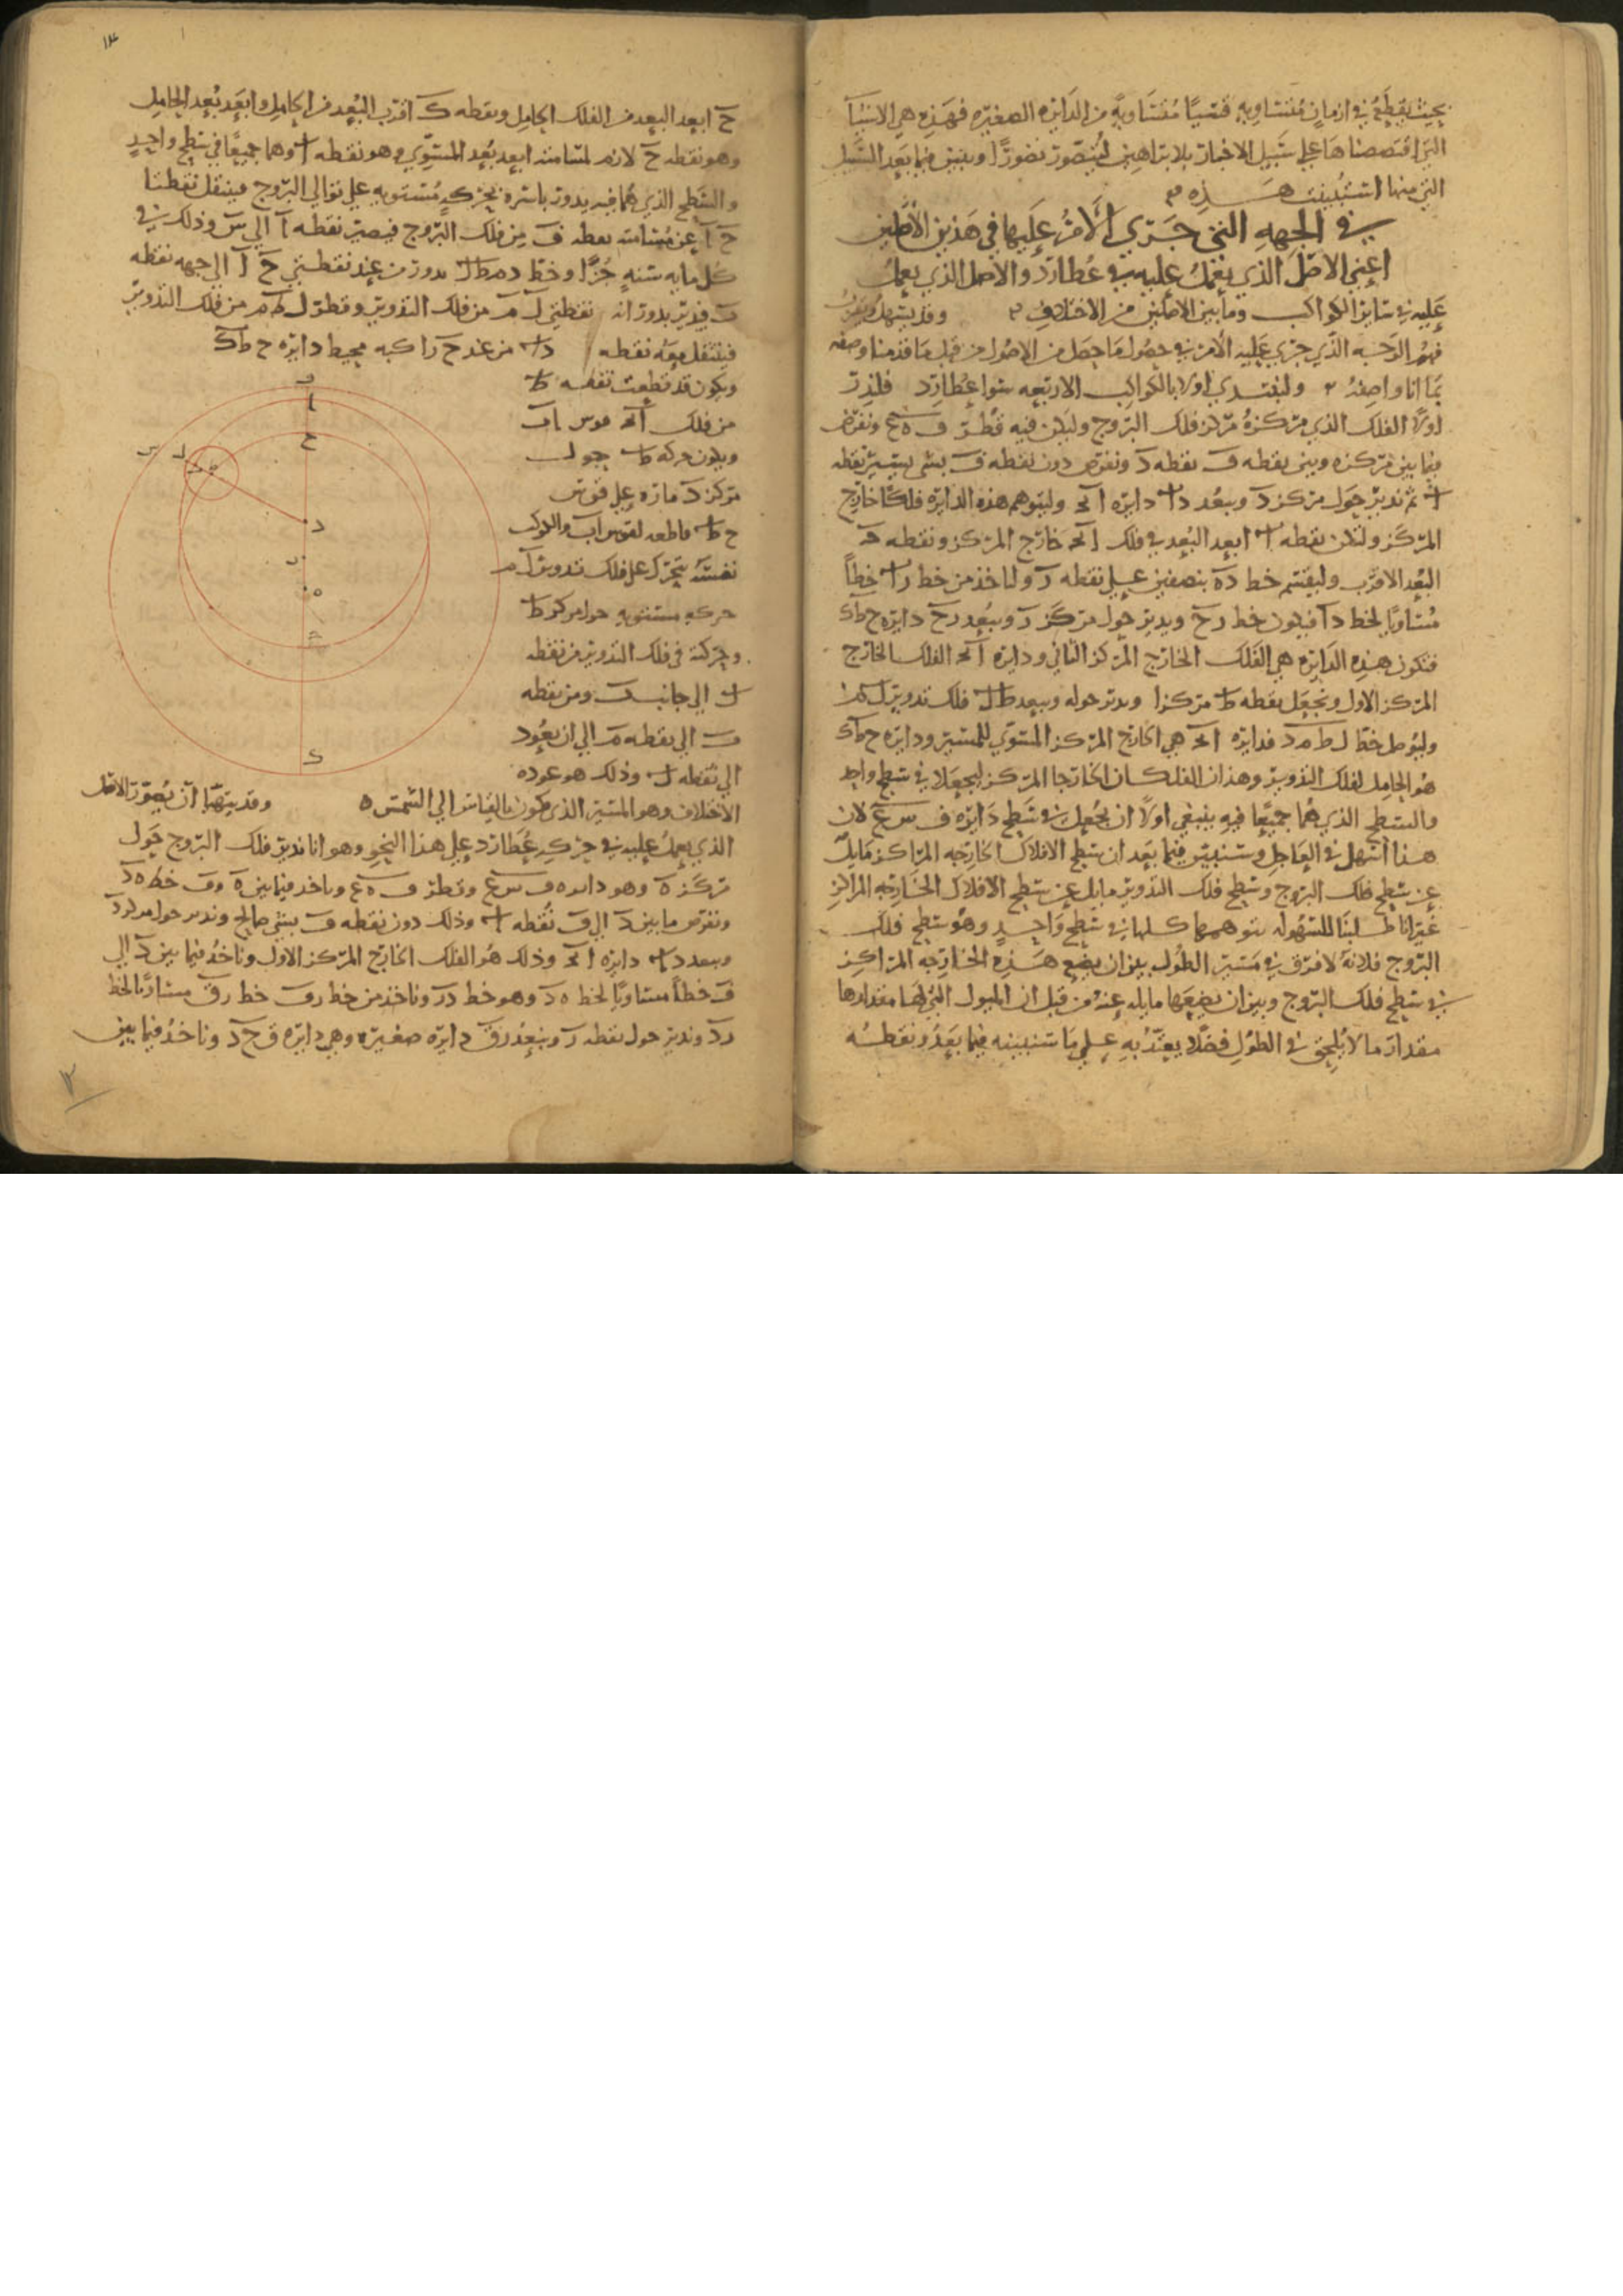 بحيث يقطع في ازمان متساويه قسيًا متساويةً من الدايره الصغيره فهذه هي الاشيآ
التي اقتصصناها على سبيل الاخبار بلا براهين ليتصور تصورًا ونبين فيما بعد السبيل
التي منها استبينت هـــذه
في الجهه التي جري الامر عليها في هذين الاصلين
اعني الاصل الذي يعمل عليه في عطارد والاصل الذي يعمل
عليه في ساير الكواكب وما بين الاصلين من الاختلاف وقد يسهل
فهم الوجه الذي جري عليه الامر في حصول ما حصل من الاصول من قبل ما قدمنا وصفه
بما انا واصفه ولنبتدي اولا بالكواكب الاربعه سوا عطارد فلندر
اولا الفلك الذي مركزه مركز فلك البروج وليكن فيه قطر ف ه ع ونفرض
فيما بين مركزه وبين نقطه ف نقطه د ونفرض دون نقطه ف بشي يسير نقطه
ا ثم ندير حول مركز د وببعد دا دايره ا ح وليتوهم هذه الدايره فلكًا خارج
المركز ولتكن نقطه ا ابعد البعد في فلك خارج المركز ونقطه
البعد الاقرب وليقسم خط ده بنصفين على نقطه ر ولناخذ من خط را خطاً
مساويًا لخط دا فيكون خط رح ويدير حول مركز ر وببعد رح دايره ح ط ك
فتكون هذه الدايره هي الفلك الخارج المركز الثاني ودايره الفلك الخارج
المركز الاول ونجعل نقطه ط مركزا وندير حوله وببعد ط ل فلك تدوير ل م
وليوصل خط ل ط م د فدايره هي الخارج المركز المستوي للمسير ودايره ح ط ك
هو الحامل لفلك التدوير وهذان الفلكان الخارجا المركز ليجعلا في سطح واحد
والسطح الذي هما جميعًا فيه ينبغي اولاً ان يجعل في سطح دايره ف س ع لان
هذا اسهل في العاجل وسنبين فيما بعد ان سطح الافلاك الخارجه المراكز مايل
عن سطح فلك البروج وسطح فلك التدوير مايل عن سطح الافلاك الخارجه المراكز
غير انا طلبنا للسهوله نتوهمها كلها في سطح واحدٍ وهو سطح فلك
البروج فلانه لا فرق في مسير الطول بين ان يضع هذه الخارجه المراكز
في سطح فلك البروج وبين ان يضعها مايله عنه من قبل ان الميول التي لها مقدارها
مقدار ما لا يلحق في الطول فضلا يعتد به على ما سنبينه فيما بعد ونقطه
ح ابعد البعد من الفلك الحامل ونقطه ك اقرب البعد من الحامل وابعد بعد الحامل
وهو نقطه ح لازم لمسامته ابعد بعد المستوي وهو نقطه ا وهما جميعًا في سطح واحدٍ
والسطح الذي هما فيه يدور باسره بحركه مستويه على توالي البروج فينتقل نقطتا
ح ا عن مسامته نقطه ف من فلك البروج فيصير نقطه ا الى س وذلك في
كل مايه سنه جزا وخط د م ط ل يدور من عند نقطتي ح ا الى جهه نقطه
فيدير بدورانه نقطتي ل م من فلك التدوير وقطر ل ط م من فلك التدوير
فينتقل معه نقطه من عند ح راكبه محيط دايره ح ط ك
ويكون قد قطعت نقطه ط
من فلك قوس
ويكون حركه ط حول
مركز د ماره على قوس
ح ط قاطعه لقوس والكوكب
نفسه يتحرك على فلك تدوير ل م
حركه مستويه حول مركز ط
وحركته في فلك التدوير من نقطه
ل الى جانب ومن نقطه
الى نقطه م الى ان يعود
الى نقطه ل وذلك هو عوده
الاختلاف وهو المسير الذي يكون بالقياس الى الشمس ه وقد يتهيا ان نصور الاصل
الذي يعمل عليه في حركه عطارد على هذا النحو وهو انا ندير فلك البروج حول
مركزه وهو دايره ف س ع وقطر ف ه ع وناخذ فيما بين ه وف خط ه د
ونفرض ما بين د الى ف نقطه ا وذلك دون نقطه ف بشي صالح وندير حول مركز د
وببعد دا دايره وذلك هو الفلك الخارج المركز الاول وناخذ فيما بين د الى
ف خطاً مساويًا لخط ه د وهو خط در وناخذ من خط رف خط رق مساويًا لخط
رد وندير حول نقطه ر وببعد رق دايره صغيره وهي دايره ق ح د وناخذ فيما بين